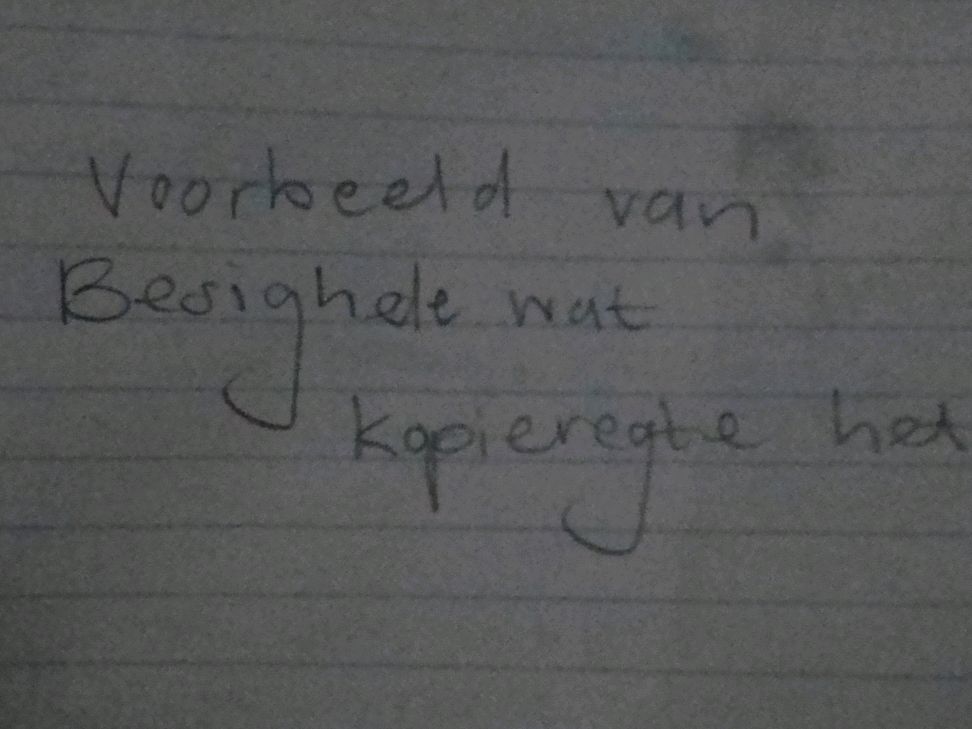 Voorbeeld van
Besighede wat
kopieregte het